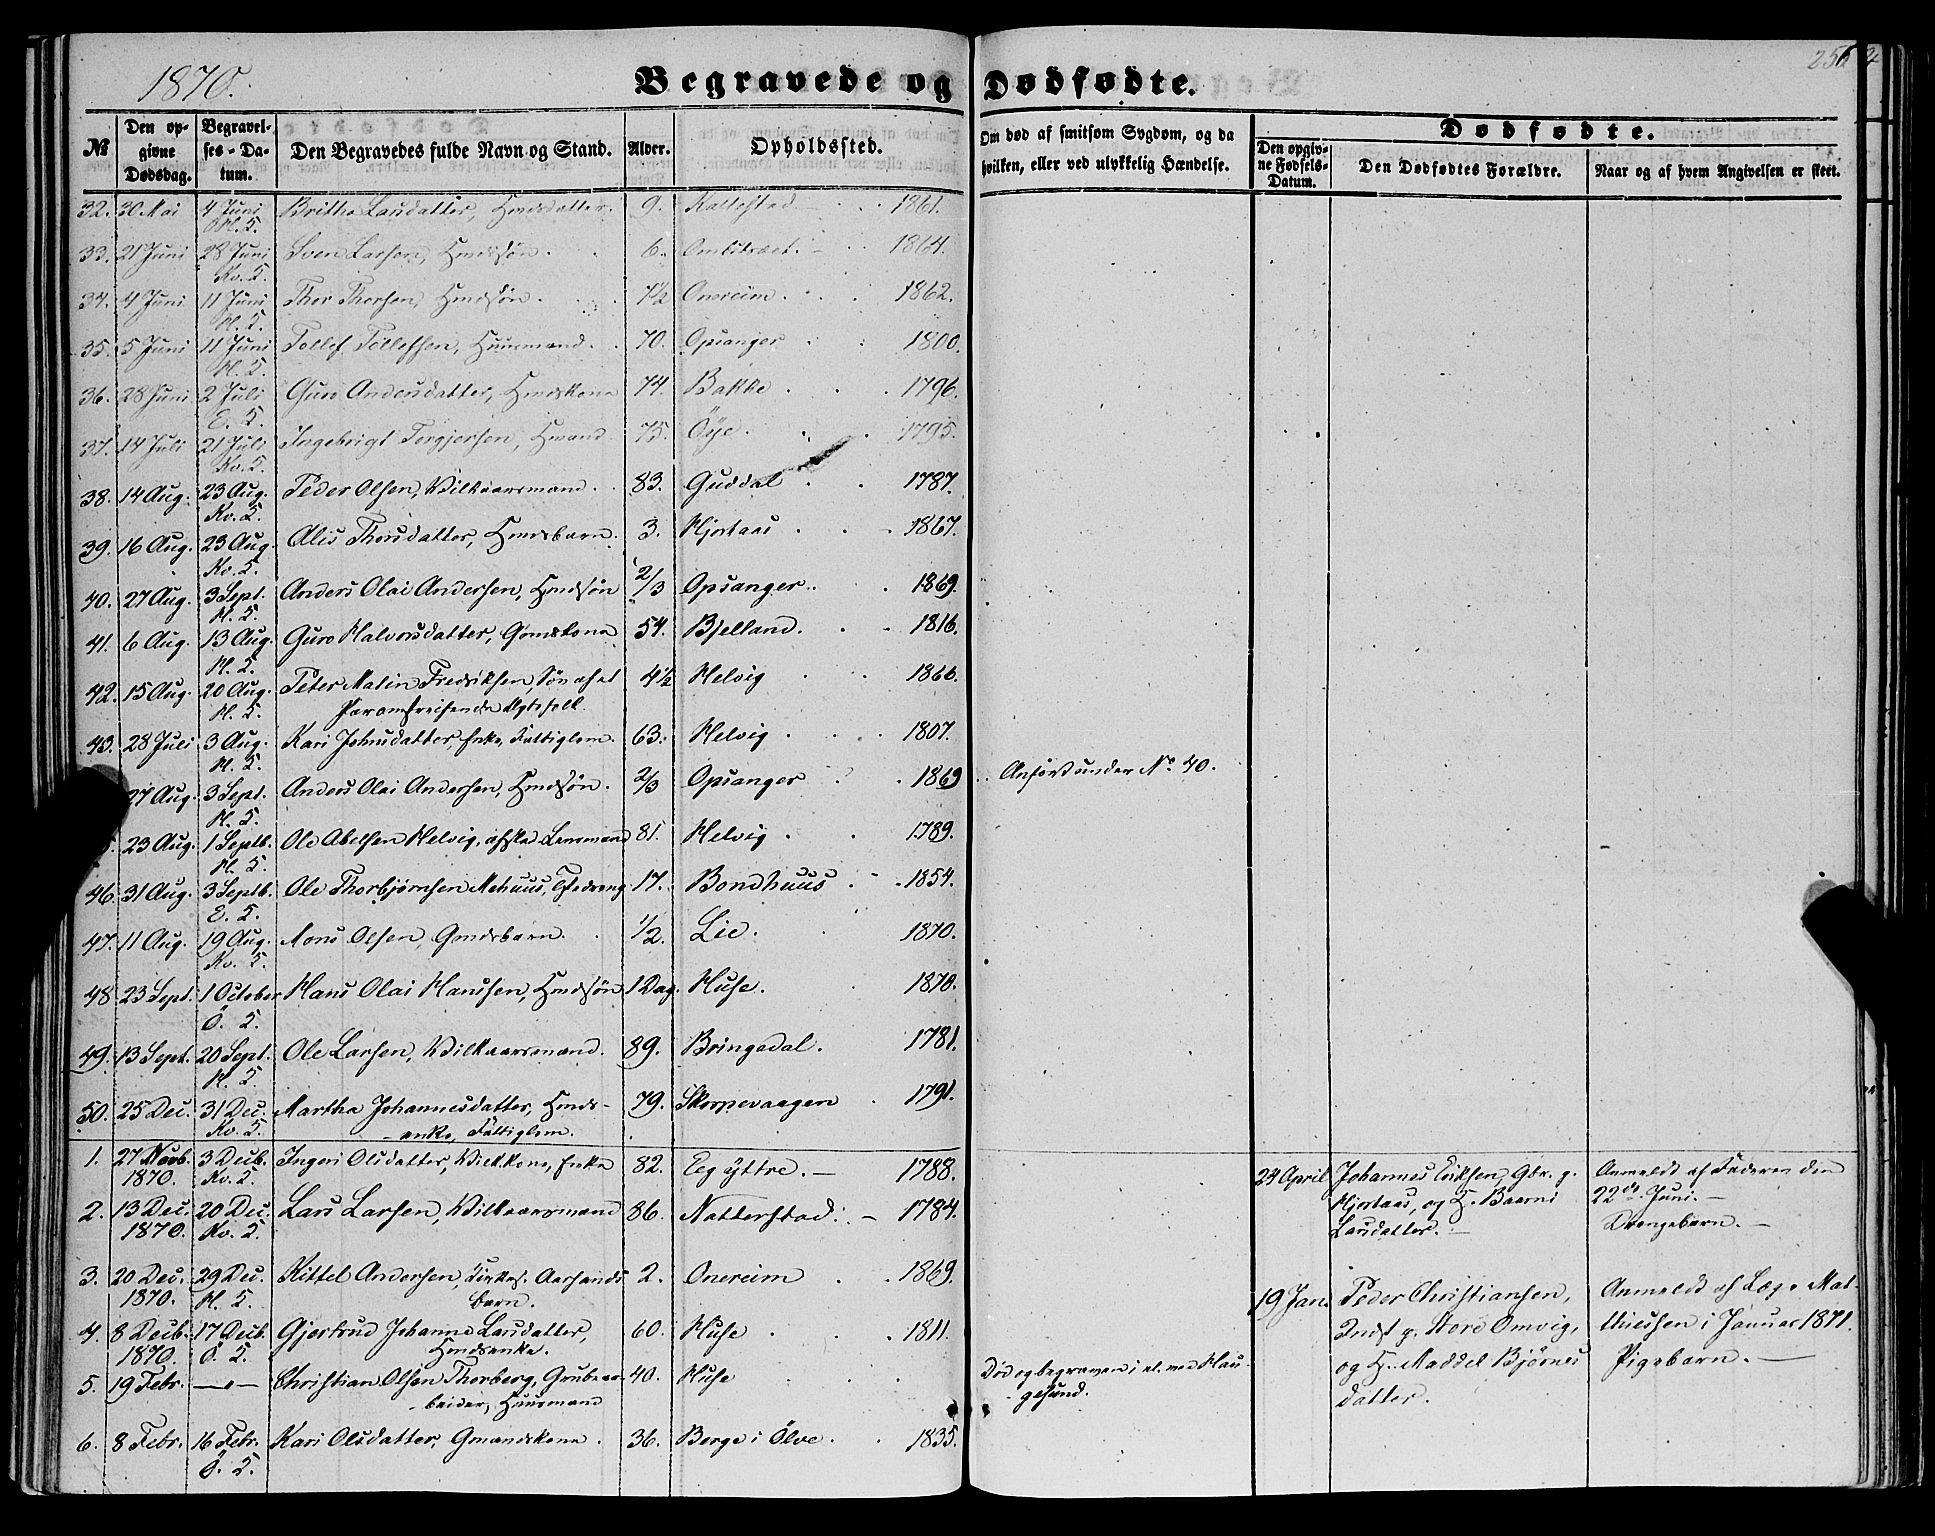 1870.
Begravede og Dødfødte.
256
№
Den opgivne Dødsdag.
Begravelses-Datum.
Den Begravedes fulde Navn og Stand.
Alder.
Opholdssted.
Om død af smitsom Sygdom, og da hvilken, eller ved ulykkelig Hændelse.
Dødfødte.
Den opgivne Fødsels-Datum.
Den Dødfødtes Forældre.
Naar og af hvem Angivelsen er skeet.
32. 30 Mai 4 Juni Britha Larsdatter, Hmdsdatter. 9. Kattestad 1861.
H. S.
33. 21 Juni 28 Juni Sven Larsen, Hmdssøn. 6. 1864.
Kv. S.
34. 4 Juni 11 Juni Thor Thorsen, Hmdssøn. 7½ Onereim. 1862.
H. S.
35. 5 Juni 11 Juni Tollef Tollefsen, Huusmand. 70. Opsanger 1800.
H. S.
36. 28 Juni 2 Juli Guro Andersdatter, Hmdskone 74. Bakke 1796.
E. S.
37. 14 Juli 21 Juli Ingebrigt Torgjersen, Hmand 75. Öye. 1795.
Kv. S.
38. 14 Aug. 23 Aug. Peder Olsen, Vilkaarsmand. 83. Guddal 1787.
Kv. S.
39. 16 Aug. 23 Aug. Alis Thorsdatter, Hmdsbarn. 3. Hjortaas 1867.
Kv. S.
40. 27 Aug. 3 Sept. Anders Olai Andersen, Hmdssøn 2/3 Opsanger. 1869.
H. S.
41. 6 Aug. 13 Aug. Guro Halvorsdatter, Gmdskone 54. Bjelland. 1816.
H. S.
42. 15 Aug. 20 Aug. Peter Malin Fredriksen, Søn af et 4½ Helvig 1866.
H. S. Par omreisende Ægtefolk.
43. 28 Juli 3 Aug. Kari Johnsdatter, Enke, Fattiglem. 63. Helvig 1807.
H. S.
27 Aug. 3 Sept. Anders Olai Andersen, Hmdssøn. 2/3 Opsanger 1869 Anført under No. 40.
H. S.
23 Aug. 1 Septb. Ole Abelsen Helvig, afsked. Lensmand 81. Helvig 1789.
H. S.
46. 31 Aug. 3 Septb. Ole Thorbjørnsen Mehuus, 17. Bondhuus 1854.
E. S.
47. 11 Aug. 19 Aug. Mons Olsen, Gmdsbarn. 1/2. Lie. 1870.
Kv. S.
48 23 Sept. 1 October Hans Olai Hansen, Hmdssøn 1 Dag. Huse. 1870.
Ö. S.
49. 13 Sept. 20 Sept. Ole Larsen, Vilkaarsmand. 89. Bringedal. 1781.
H. S.
50. 25 Dec. 31 Dec. Martha Johannesdatter, Hmds- 79. Skorpevaagen 1791.
Kv. S. enke, Fattiglem.
1. 27 Novb. 3 Decb. Ingeri Olsdatter, Vilk.kone, Enke 82. Eeg yttre. 1788.
1870. Kv. S.
2. 13 Dec. 20 Dec. Lars Larsen, Vilkaarsmand 86. Natterstad. 1784.
1870. Kv. S.
3. 20 Dec. 29 Dec. Kittel Andersen, Kirkes. Aarsands 2. Onereim 1869.
1870. H. S. barn.
4. 8 Decb. 17 Decb. Gjertrud Johanne Larsdatter, 60. Huse 1811.
1870. Ö. S. Hmdsenke.
5. 19 Febr. Christian Olsen Thorberg, Grubear- 40. Huse
beider, Huusmand
Død og begraven i el. ved Hau-
gesund.
6. 8 Febr. 16 Febr. Kari Olsdatter, Gmandskone. 36. Berge i Ölve. 1835.
Ö. S.
24 April Johannes Eriksen, Gbr. g.
Hjortaas, og H. Baarni
Larsdatter.
Anmeldt af Faderen den
22de Juni.
Drengebarn.
19 Jan. Peder Christiansen,
Indst g. Nore Omvig,
og H. Maddel Bjørns
datter.
Anmeldt af Læge Mat-
thiessen i Januar 1871.
Pigebarn.